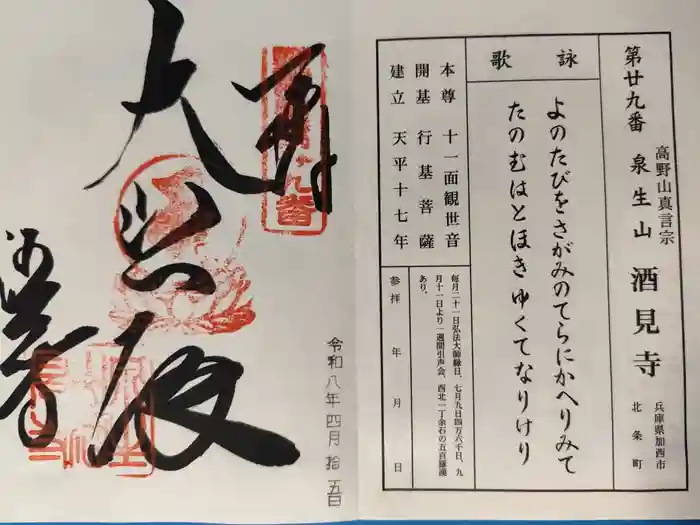 第廿九番
高野山真言宗
泉生山
酒見寺
兵庫県加西市
北条町
詠歌
よのたびをさがみのてらにかへりみて
たのむはとほきゆくてなりけり
本尊 十一面観世音
開基 行基菩薩
建立 天平十七年
毎月二十一日弘法大師縁日、七月九日四万六千日、九
月十一日より一週間引声会、西北一丁余石の五百羅漢
あり。
参拝 年 月 日
奉拝
大悲殿
酒見寺
令和八年四月拾五日